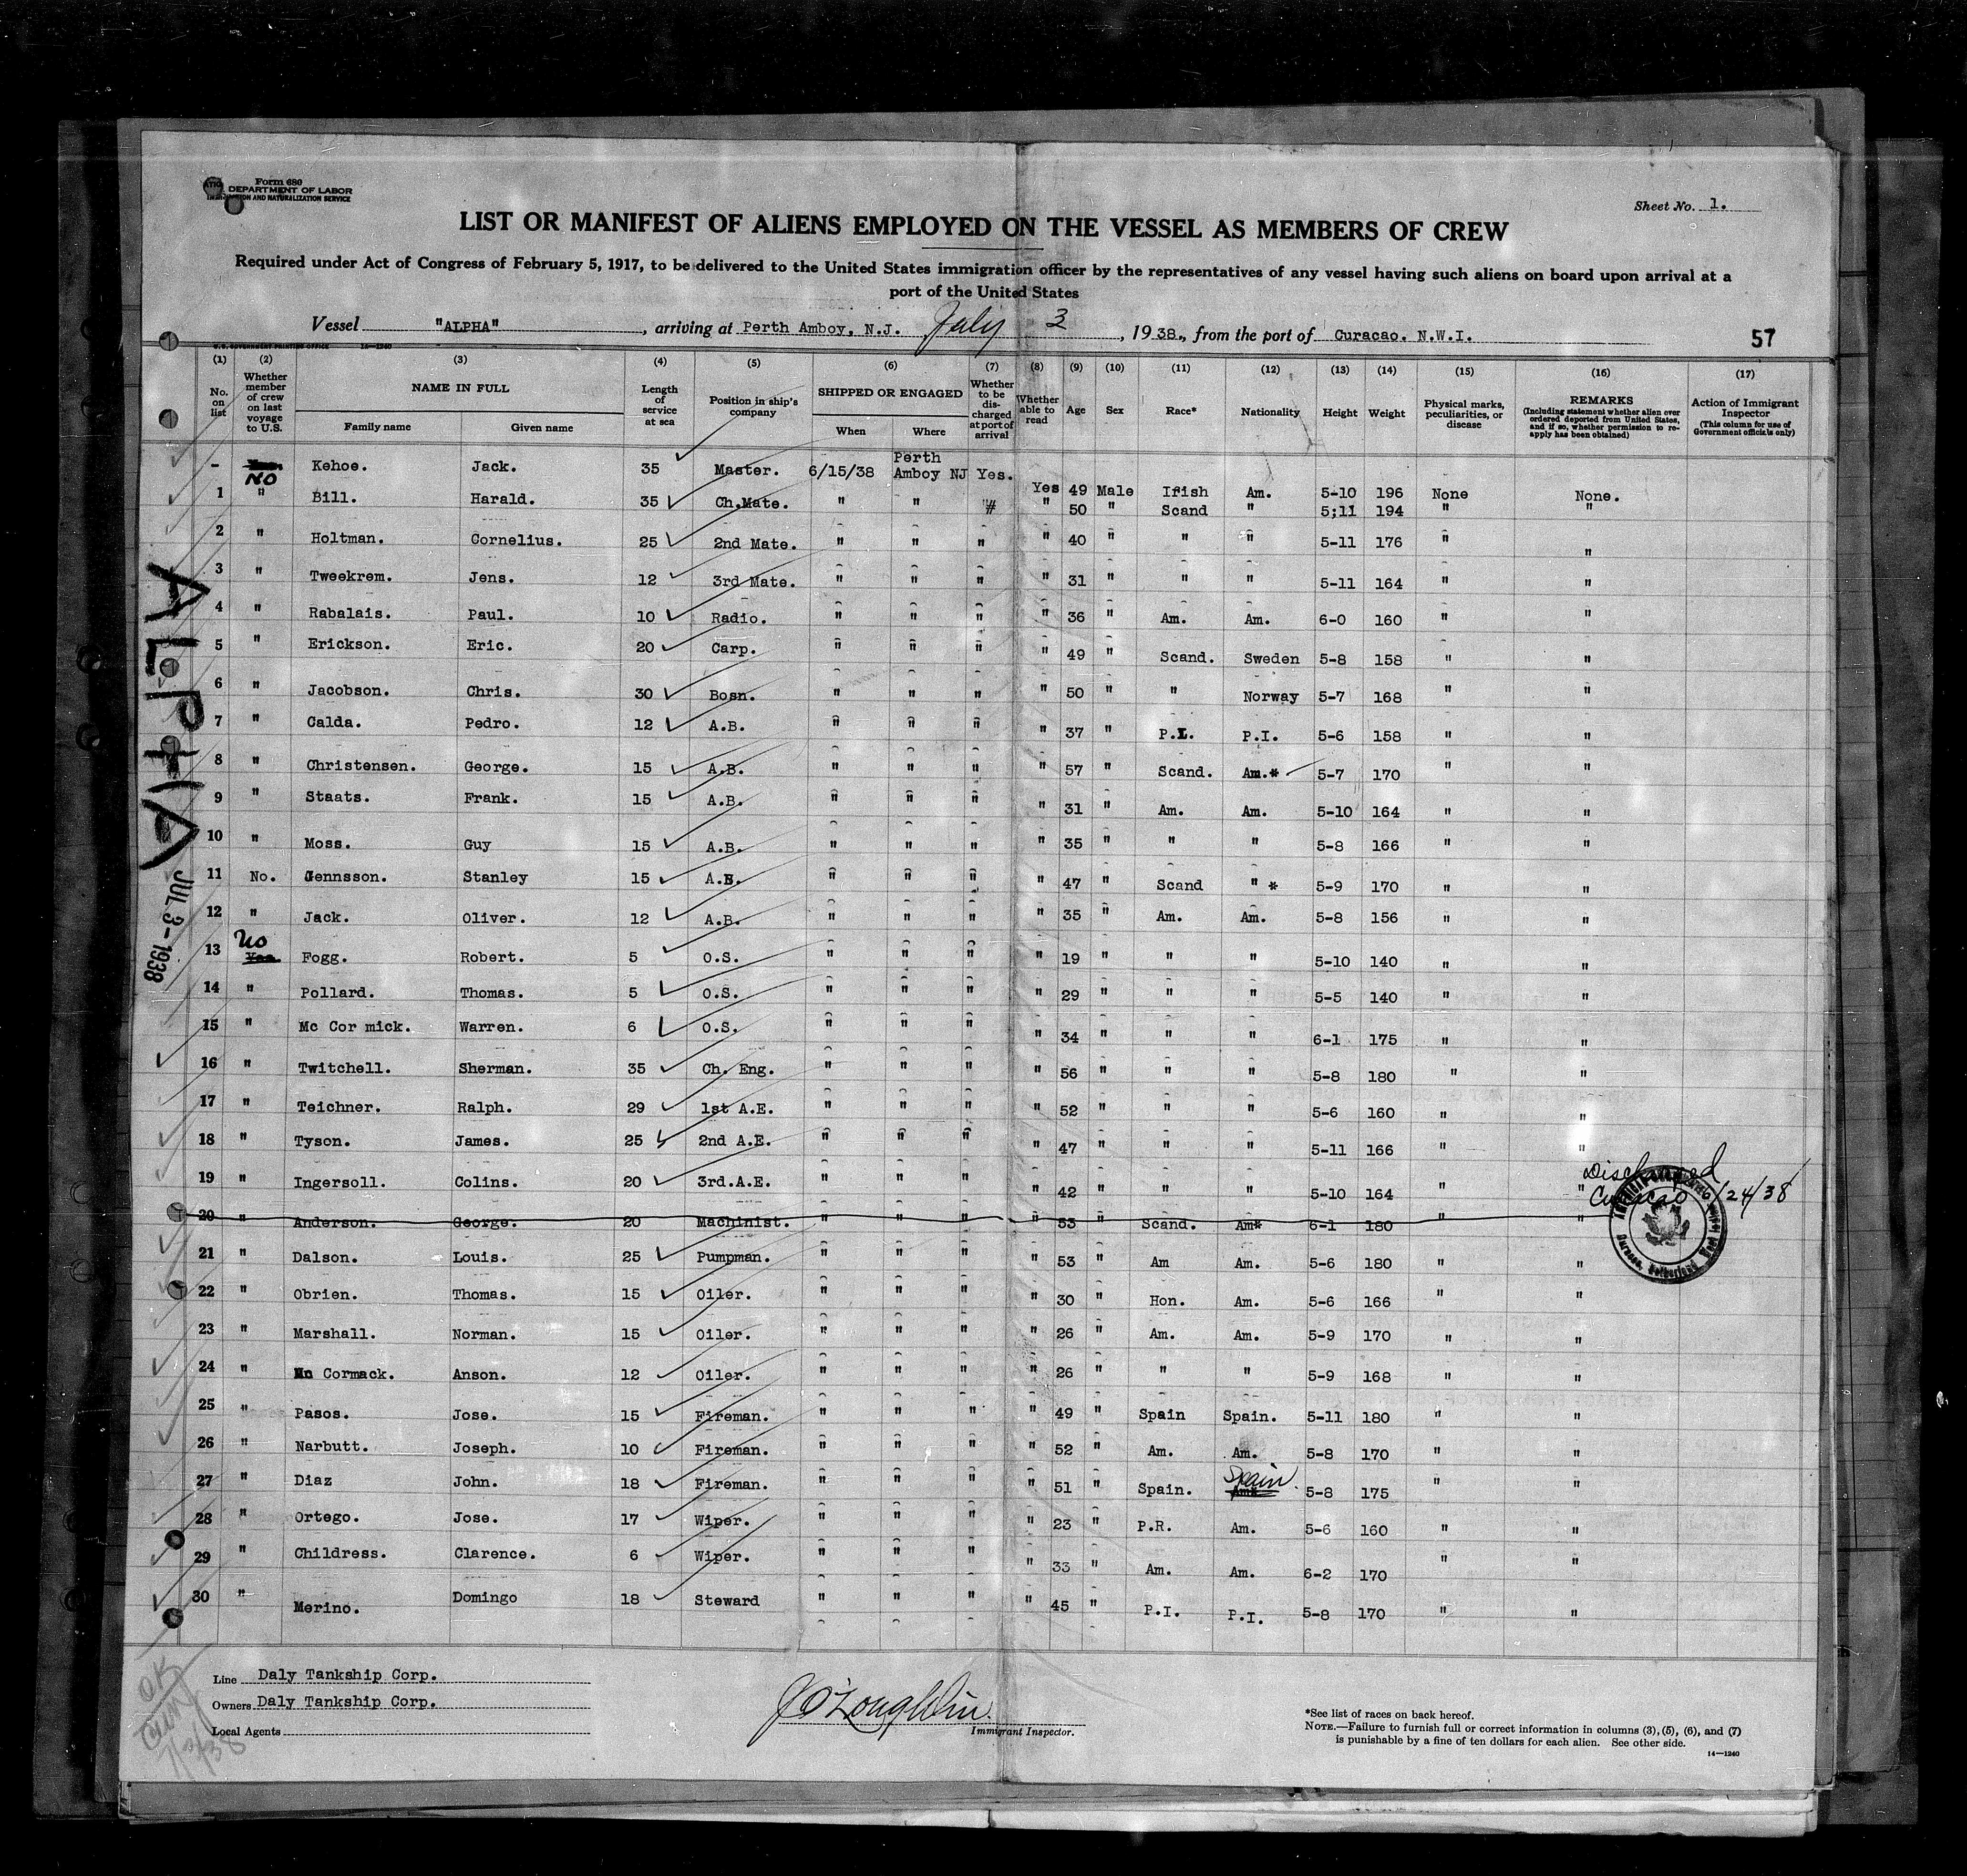 Form 680
DEPARTMENT OF LABOR
IMMIGRATION AND NATURALIZATION SERVICE
Sheet No. 1.
LIST OR MANIFEST OF ALIENS EMPLOYED ON THE VESSEL AS MEMBERS OF CREW
Required under Act of Congress of February 5, 1917, to be delivered to the United States immigration officer by the representatives of any vessel having such aliens on board upon arrival at a
port of the United States
Vessel "ALPHA", arriving at Perth Amboy, N.J. July 3, 1938., from the port of Curacao. N.W.I.
57
U.S. GOVERNMENT PRINTING OFFICE 14—1240
(1) (2) (3) (4) (5) (6) (7) (8) (9) (10) (11) (12) (13) (14) (15) (16) (17)
No. on list
Whether member of crew on last voyage to U.S.
NAME IN FULL
Family name Given name
Length of service at sea
Position in ship's company
SHIPPED OR ENGAGED
When Where
Whether to be discharged at port of arrival
Whether able to read
Age
Sex
Race*
Nationality
Height
Weight
Physical marks, peculiarities, or disease
REMARKS
(Including statement whether alien ever ordered deported from United States, and if so, whether permission to reapply has been obtained)
Action of Immigrant Inspector
(This column for use of Government officials only)
- NO Kehoe. Jack. 35 Master. 6/15/38 Perth Amboy NJ Yes. Yes 49 Male Irish Am. 5-10 196 None None.
1 " Bill. Harald. 35 Ch.Mate. " " " " 50 " Scand " 5;11 194 " "
2 " Holtman. Cornelius. 25 2nd Mate. " " " " 40 " " " 5-11 176 " "
3 " Tweekrem. Jens. 12 3rd Mate. " " " " 31 " " " 5-11 164 " "
4 " Rabalais. Paul. 10 Radio. " " " " 36 " Am. Am. 6-0 160 " "
5 " Erickson. Eric. 20 Carp. " " " " 49 " Scand. Sweden 5-8 158 " "
6 " Jacobson. Chris. 30 Bosn. " " " " 50 " " Norway 5-7 168 " "
7 " Calda. Pedro. 12 A.B. " " " " 37 " P.I. P.I. 5-6 158 " "
8 " Christensen. George. 15 A.B. " " " " 57 " Scand. Am.* 5-7 170 " "
9 " Staats. Frank. 15 A.B. " " " " 31 " Am. Am. 5-10 164 " "
10 " Moss. Guy 15 A.B. " " " " 35 " " " 5-8 166 " "
11 No. Gennsson. Stanley 15 A.B. " " " " 47 " Scand " * 5-9 170 " "
12 " Jack. Oliver. 12 A.B. " " " " 35 " Am. Am. 5-8 156 " "
13 No Yes. Fogg. Robert. 5 O.S. " " " " 19 " " " 5-10 140 " "
14 " Pollard. Thomas. 5 O.S. " " " " 29 " " " 5-5 140 " "
15 " Mc Cor mick. Warren. 6 O.S. " " " " 34 " " " 6-1 175 " "
16 " Twitchell. Sherman. 35 Ch. Eng. " " " " 56 " " " 5-8 180 " "
17 " Teichner. Ralph. 29 1st A.E. " " " " 52 " " " 5-6 160 " "
18 " Tyson. James. 25 2nd A.E. " " " " 47 " " " 5-11 166 " "
19 " Ingersoll. Colins. 20 3rd.A.E. " " " " 42 " " " 5-10 164 " "
Discharged
Curacao /24/38
20 " Anderson. George. 20 Machinist. " " " " 53 " Scand. Am* 6-1 180 " "
21 " Dalson. Louis. 25 Pumpman. " " " " 53 " Am Am. 5-6 180 " "
22 " Obrien. Thomas. 15 Oiler. " " " " 30 " Hon. Am. 5-6 166 " "
23 " Marshall. Norman. 15 Oiler. " " " " 26 " Am. Am. 5-9 170 " "
24 " Mc Cormack. Anson. 12 Oiler. " " " " 26 " " " 5-9 168 " "
25 " Pasos. Jose. 15 Fireman. " " " " 49 " Spain Spain. 5-11 180 " "
26 " Narbutt. Joseph. 10 Fireman. " " " " 52 " Am. Am. 5-8 170 " "
27 " Diaz John. 18 Fireman. " " " " 51 " Spain. Spain. 5-8 175 " "
28 " Ortego. Jose. 17 Wiper. " " " " 23 " P.R. Am. 5-6 160 " "
29 " Childress. Clarence. 6 Wiper. " " " " 33 " Am. Am. 6-2 170 " "
30 " Merino. Domingo 18 Steward " " " " 45 " P.I. P.I. 5-8 170 " "
ALPHA
JUL 3-1938
Line Daly Tankship Corp.
Owners Daly Tankship Corp.
Local Agents
OK
J O'Loughlin.
Immigrant Inspector.
*See list of races on back hereof.
NOTE.—Failure to furnish full or correct information in columns (3), (5), (6), and (7)
is punishable by a fine of ten dollars for each alien. See other side.
14—1240